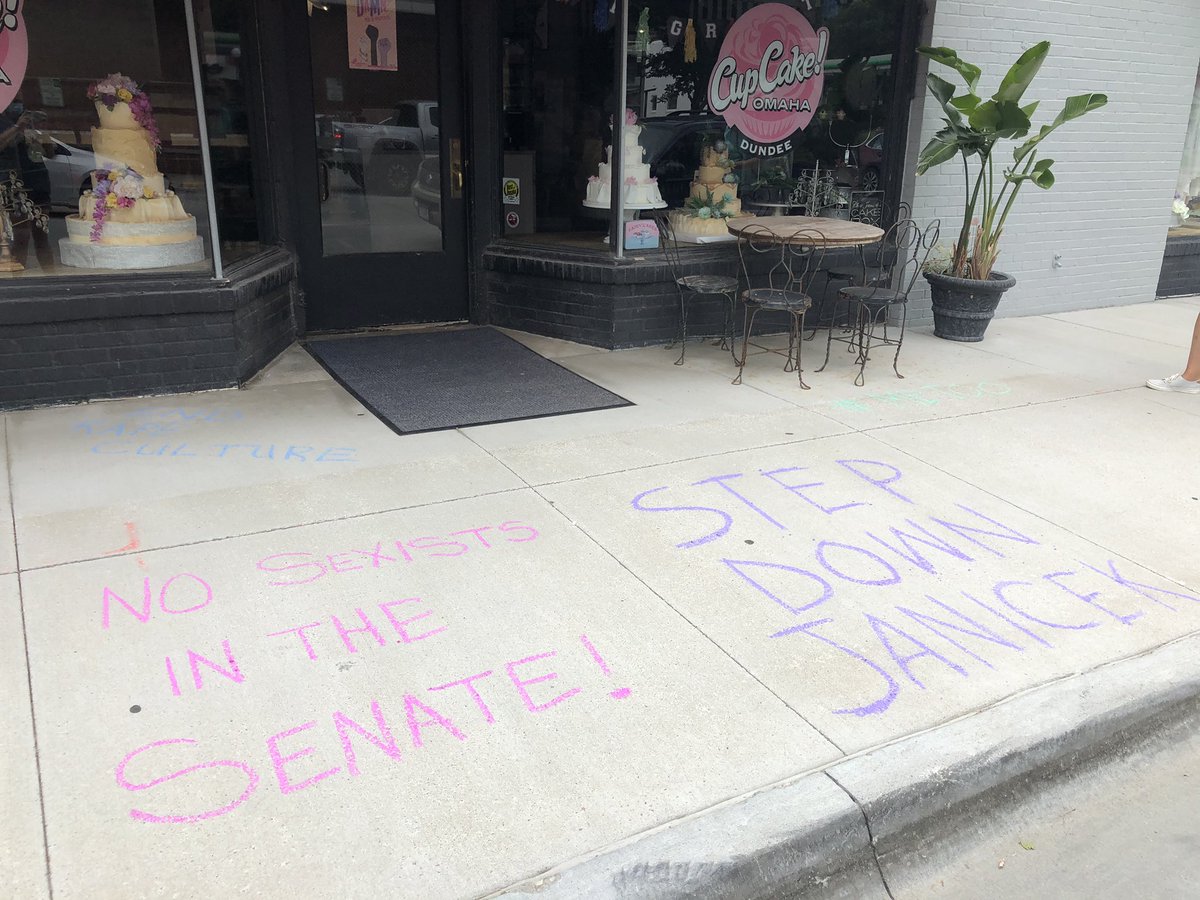 CupCake!
OMAHA
DUNDEE
CAKE
END
RAPE
CULTURE
NO SEXISTS
IN THE
SENATE!
STEP
DOWN
JANICEK